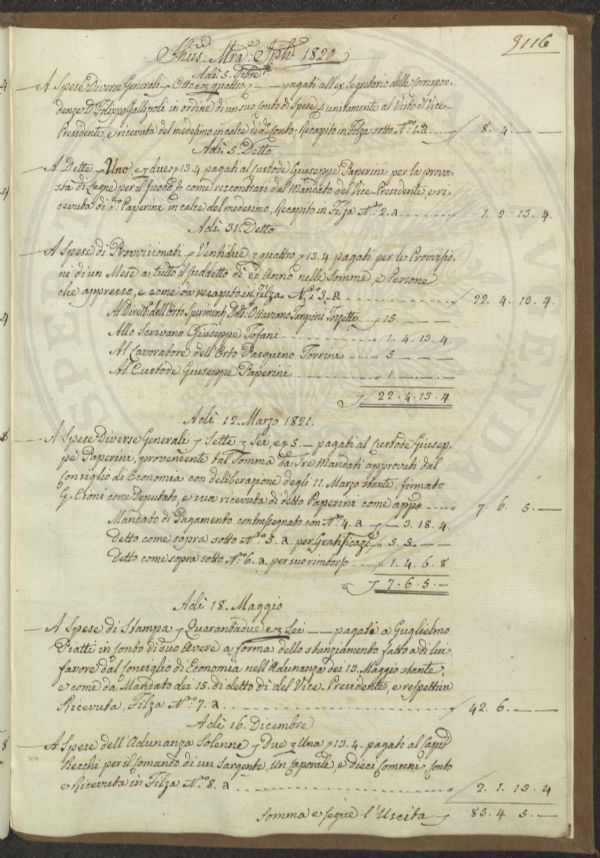 9116
1821
Adì 5. Febb.º
A Spese Diverse Generali Otto e quattro — pagati all' ex Segretario delle Corrispon-
denze D. Filippo Gallizioli in ordine di un suo Conto di Spese, unitamente al Visto d. Vice-
Presidente, e ricevuta del medesimo in calce di d.º Conto. Recapito in Filza sotto N.º 1. a 8. 4. —
Adì 5. Detto
A Dette Uno e due 13.4 pagati al Custode Giuseppe Paperini per la provvi-
sta di Legne per il fuoco come riscontrasi dal Mandato del Vice Presidente e ri-
cevuta di d.º Paperini in calce del medesimo, Recapito in Filza N.º 2. a 1. 2. 13. 4.
Adì 31. Detto
A Spese di Provvisionati Ventidue quattro 13.4 pagati per le Provvisio-
ni di un Mese a tutto il suddetto dì ed Anno nelle Somme, e Persone
che appresso, e come da recapito in Filza N.º 3. a 22. 4. 13. 4
Al Dirett. dell'Orto Speriment. Dott. Ottaviano Targioni Tozzetti 15. —
Allo Scrivano Giuseppe Tofani 1. 4. 13. 4
Al Lavoratore dell'Orto Pasquino Torrini 5 —
Al Custode Giuseppe Paperini 1 —
22. 4. 13. 4
Adì 12. Marzo 1821.
A Spese Diverse Generali Sette Sei, e 5 — pagati al Custode Giusep-
pe Paperini, proveniente tal Somma da Tre Mandati approvati dal
Consiglio di Economia con deliberazione degli 11. Marzo stante, firmato
G. Croni come Deputato, e sua ricevuta di detto Paperini come app.º 7. 6. 5. —
Mandato di Pagamento contrassegnato con N.º 4. a — 3. 18. 4.
detto come sopra sotto N.º 5. a. per Gratificaz.e 5. 5. —
detto come sopra sotto N.º 6. a. per suo rimborso 1. 4. 6. 8
7. 6. 5. —
Adì 18. Maggio
A Spese di Stampa Quarantadue e Sei — pagati a Guglielmo
Piatti in Conto di suo Avere a forma dello stanziamento fatto a di lui
favore dal Consiglio di Economia nell'Adunanza dei 13. Maggio stante,
e come da Mandato dei 15. di detto dì del Vice Presidente, e respettiva
Ricevuta, Filza N.º 7. a 42. 6. —
Adì 16. Dicembre
A Spese dell'Adunanza Solenne Due Una 13. 4. pagati al Cap.º
Becchi per il Comando di un Sargente, Un Caporale e Dieci Comuni. Conto
e Ricevuta in Filza N.º 8. a 2. 1. 13. 4
Somma e segue l'Uscita 83. 4 5. —